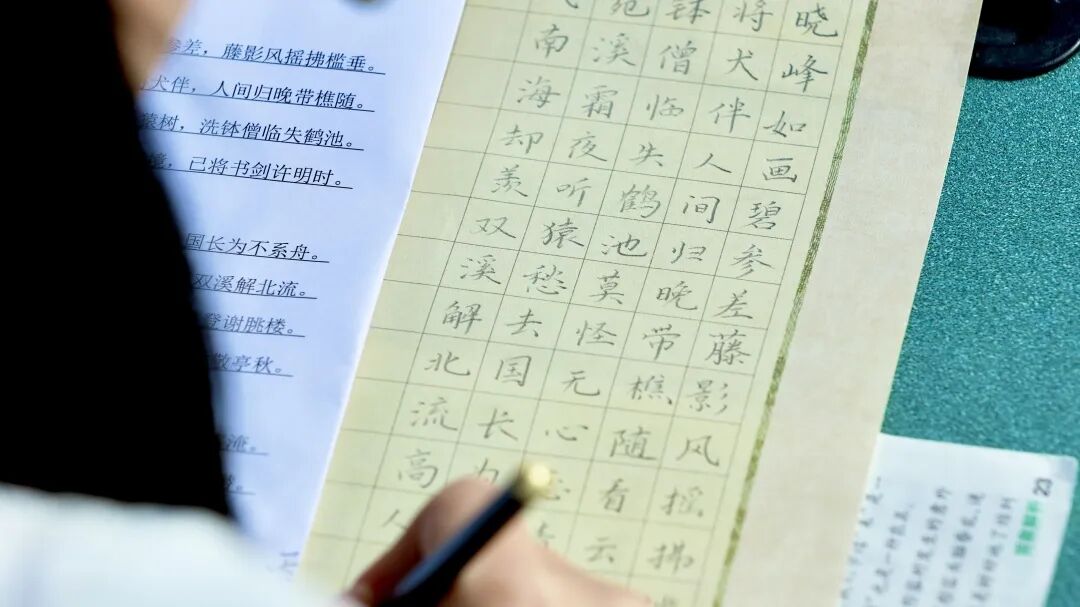 参差，藤影风摇拂槛垂。
犬伴，人间归晚带樵随。
猿树，洗钵僧临失鹤池。
境，已将书剑许明时。
国长为不系舟。
双溪解北流。
登谢朓楼。
敬亭秋。
晓峰如画碧参差藤影风摇拂
将犬伴人间归晚带樵随看云
钵僧临失鹤池莫怪无心恋
宛溪霜夜听猿愁去国长为
南海却羡双溪解北流高人
23